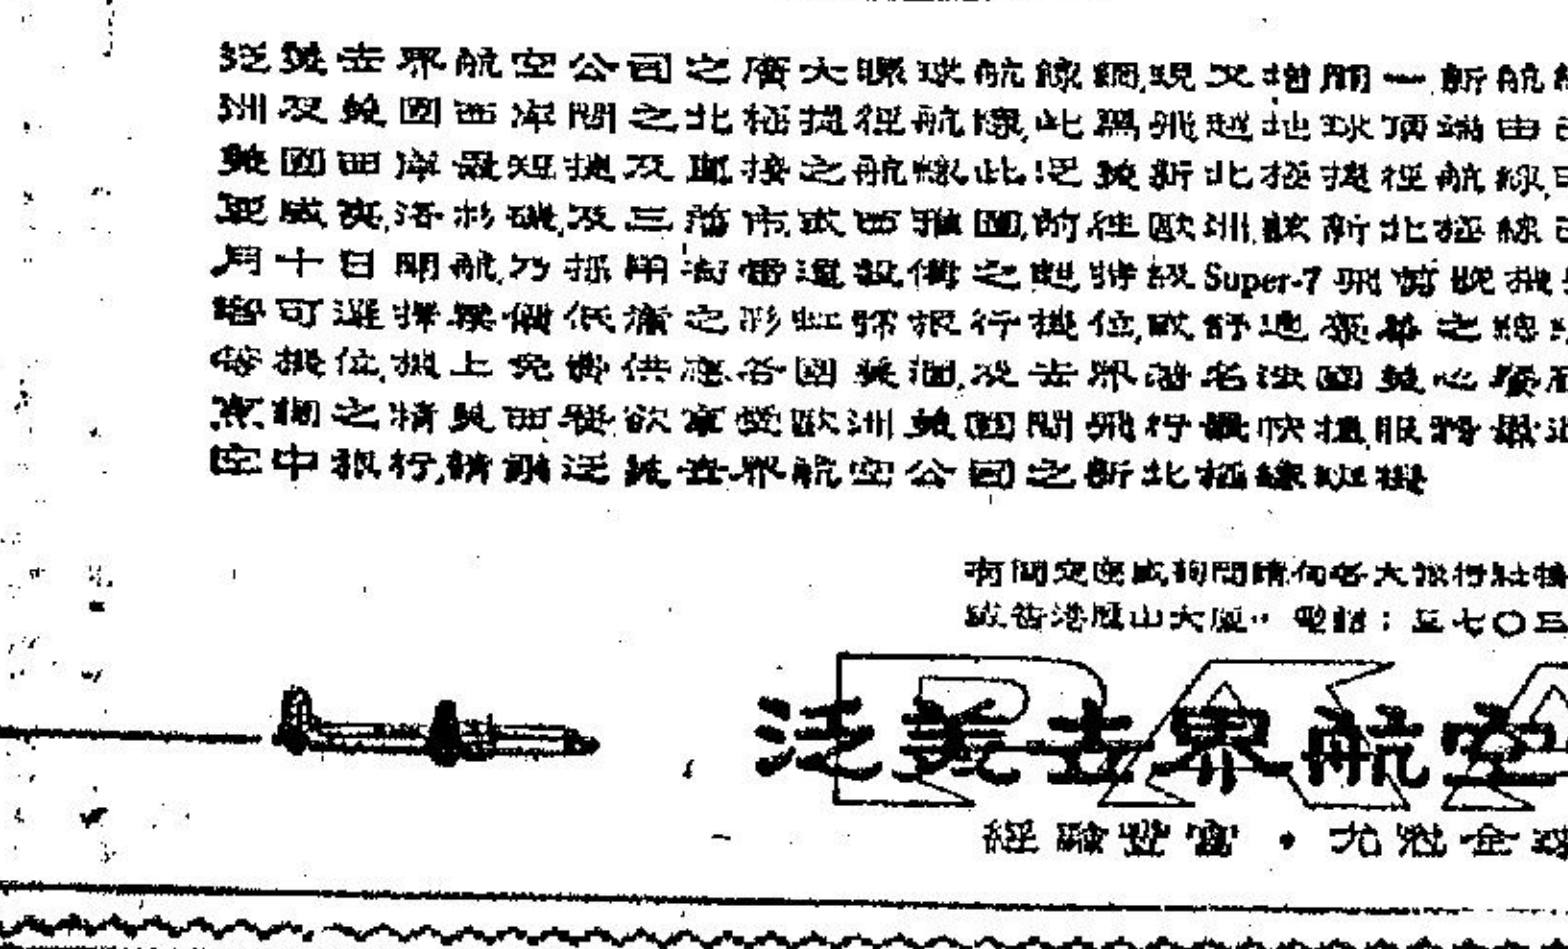 泛美世界航空公司之廣大環球航線網,現又增開一新航線
洲及美國西岸間之北極捷徑航線,此為飛越地球頂端由
美國西岸最短捷及直接之航線此泛美新北極捷徑航線,可
洛杉磯,及三藩市,或西雅圖,前往歐洲,該新北極線
月十日開航,乃採用備雷達設備之超特級Super-7飛剪號機
客可選擇票價低廉之彩虹號旅行機位,或舒適豪華之總統
等機位,機上免費供應各國美酒,及世界著名法國美心餐
烹調之精美西餐欲享受歐洲美國間飛行最快捷,服務最
空中旅行,請乘泛美世界航空公司之新北極線班機
有關定座或詢問請向各大旅行社
或香港歷山大廈 電話:五七〇三
PAA
泛美世界航空
經驗豐富・尤冠全球